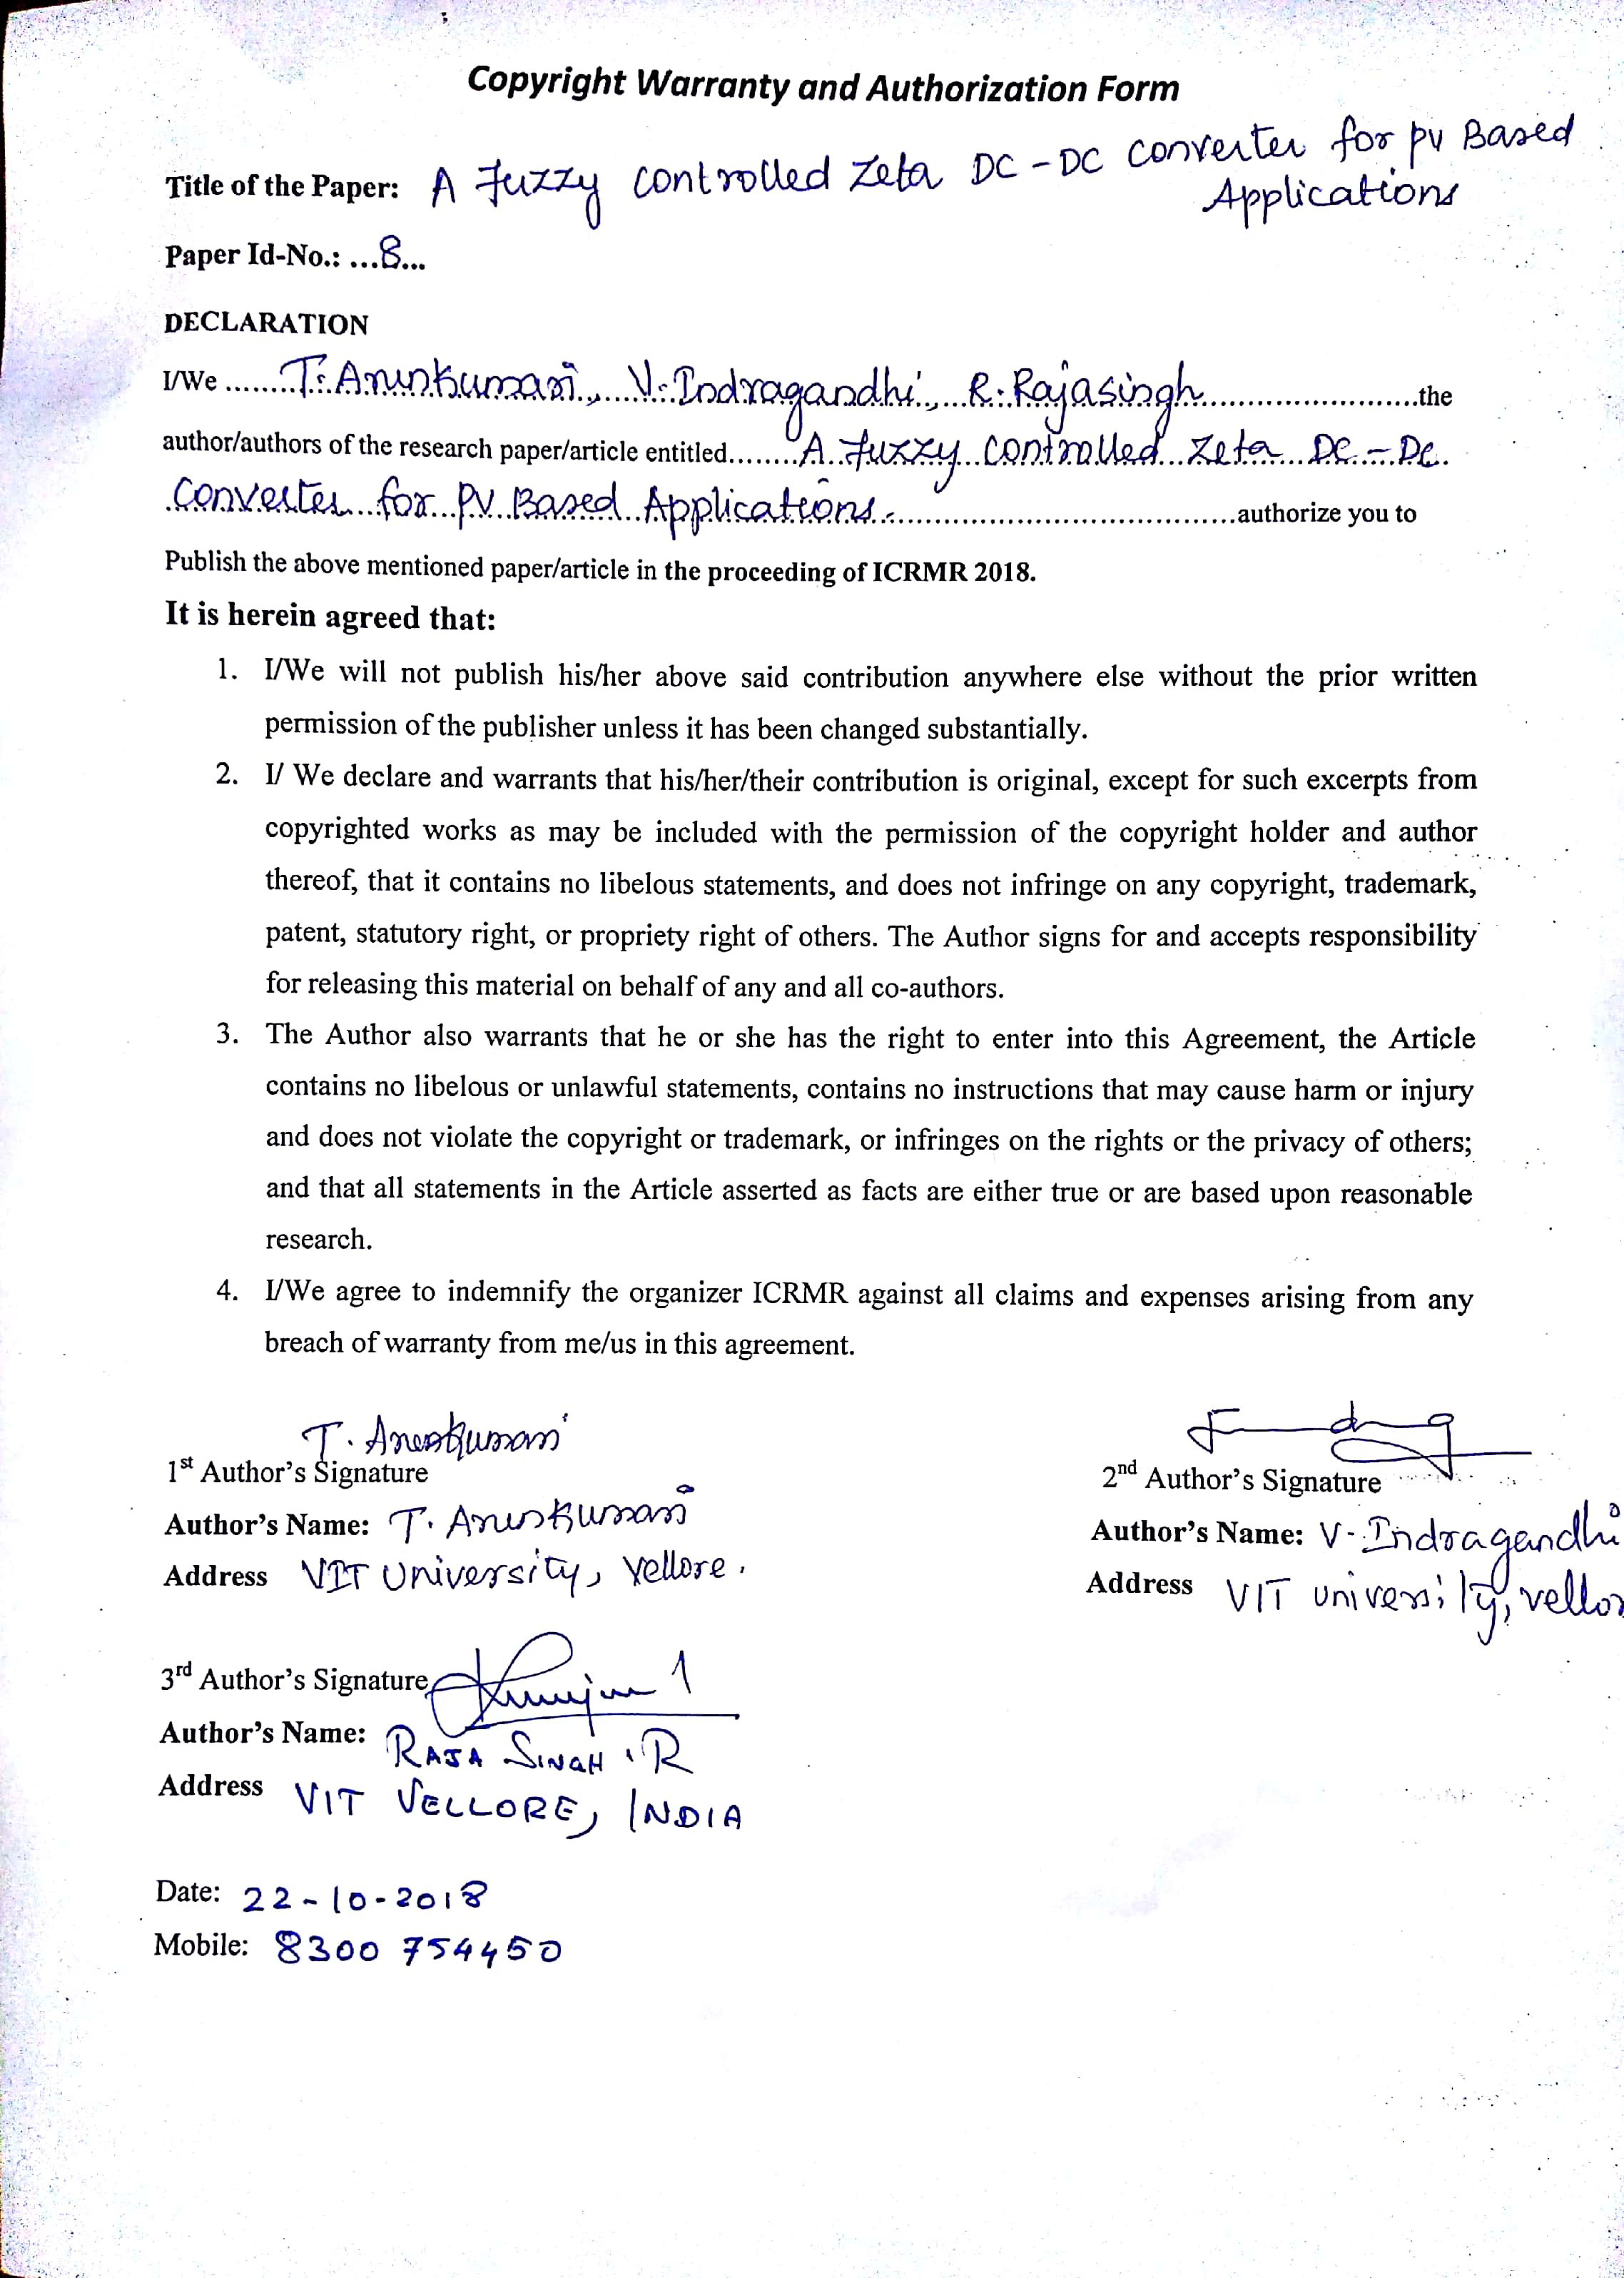 Copyright Warranty and Authorization Form
Title of the Paper: A Fuzzy controlled Zeta DC-DC converter for PV Based
Applications
Paper Id-No.: ...8...
DECLARATION
I/We ........T. Arunkumari, V. Indragandhi, R. Rajasingh..........................the
author/authors of the research paper/article entitled........A Fuzzy controlled Zeta DC-DC.
Converter for PV Based Applications..........................................authorize you to
Publish the above mentioned paper/article in the proceeding of ICRMR 2018.
It is herein agreed that:
1. I/We will not publish his/her above said contribution anywhere else without the prior written
permission of the publisher unless it has been changed substantially.
2. I/ We declare and warrants that his/her/their contribution is original, except for such excerpts from
copyrighted works as may be included with the permission of the copyright holder and author
thereof, that it contains no libelous statements, and does not infringe on any copyright, trademark,
patent, statutory right, or propriety right of others. The Author signs for and accepts responsibility
for releasing this material on behalf of any and all co-authors.
3. The Author also warrants that he or she has the right to enter into this Agreement, the Article
contains no libelous or unlawful statements, contains no instructions that may cause harm or injury
and does not violate the copyright or trademark, or infringes on the rights or the privacy of others;
and that all statements in the Article asserted as facts are either true or are based upon reasonable
research.
4. I/We agree to indemnify the organizer ICRMR against all claims and expenses arising from any
breach of warranty from me/us in this agreement.
T. Arunkumari
1st Author's Signature
2nd Author's Signature
Author's Name: T. Arunkumari
Author's Name: V. Indragandhi
Address VIT University, Vellore.
Address VIT university, vellor
3rd Author's Signature
Author's Name: RAJA SINGH . R
Address VIT VELLORE, INDIA
Date: 22-10-2018
Mobile: 8300 754450